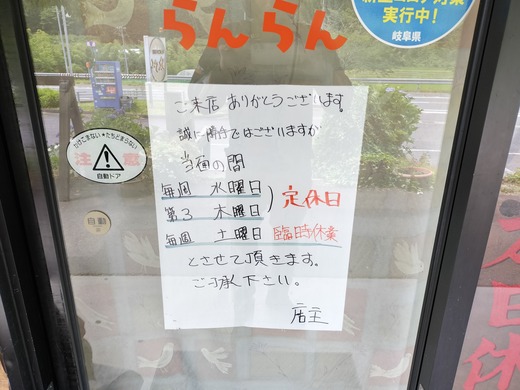 らんらん
実行中!
岐阜県
ご来店ありがとうございます。
誠に勝手ではございますが
当面の間
毎週 水曜日
第3 木曜日
定休日
毎週 土曜日 臨時休業
とさせて頂きます。
ご了承下さい。
店主
かけこまない・たちどまらない
注意
自動ドア
自動
本日休